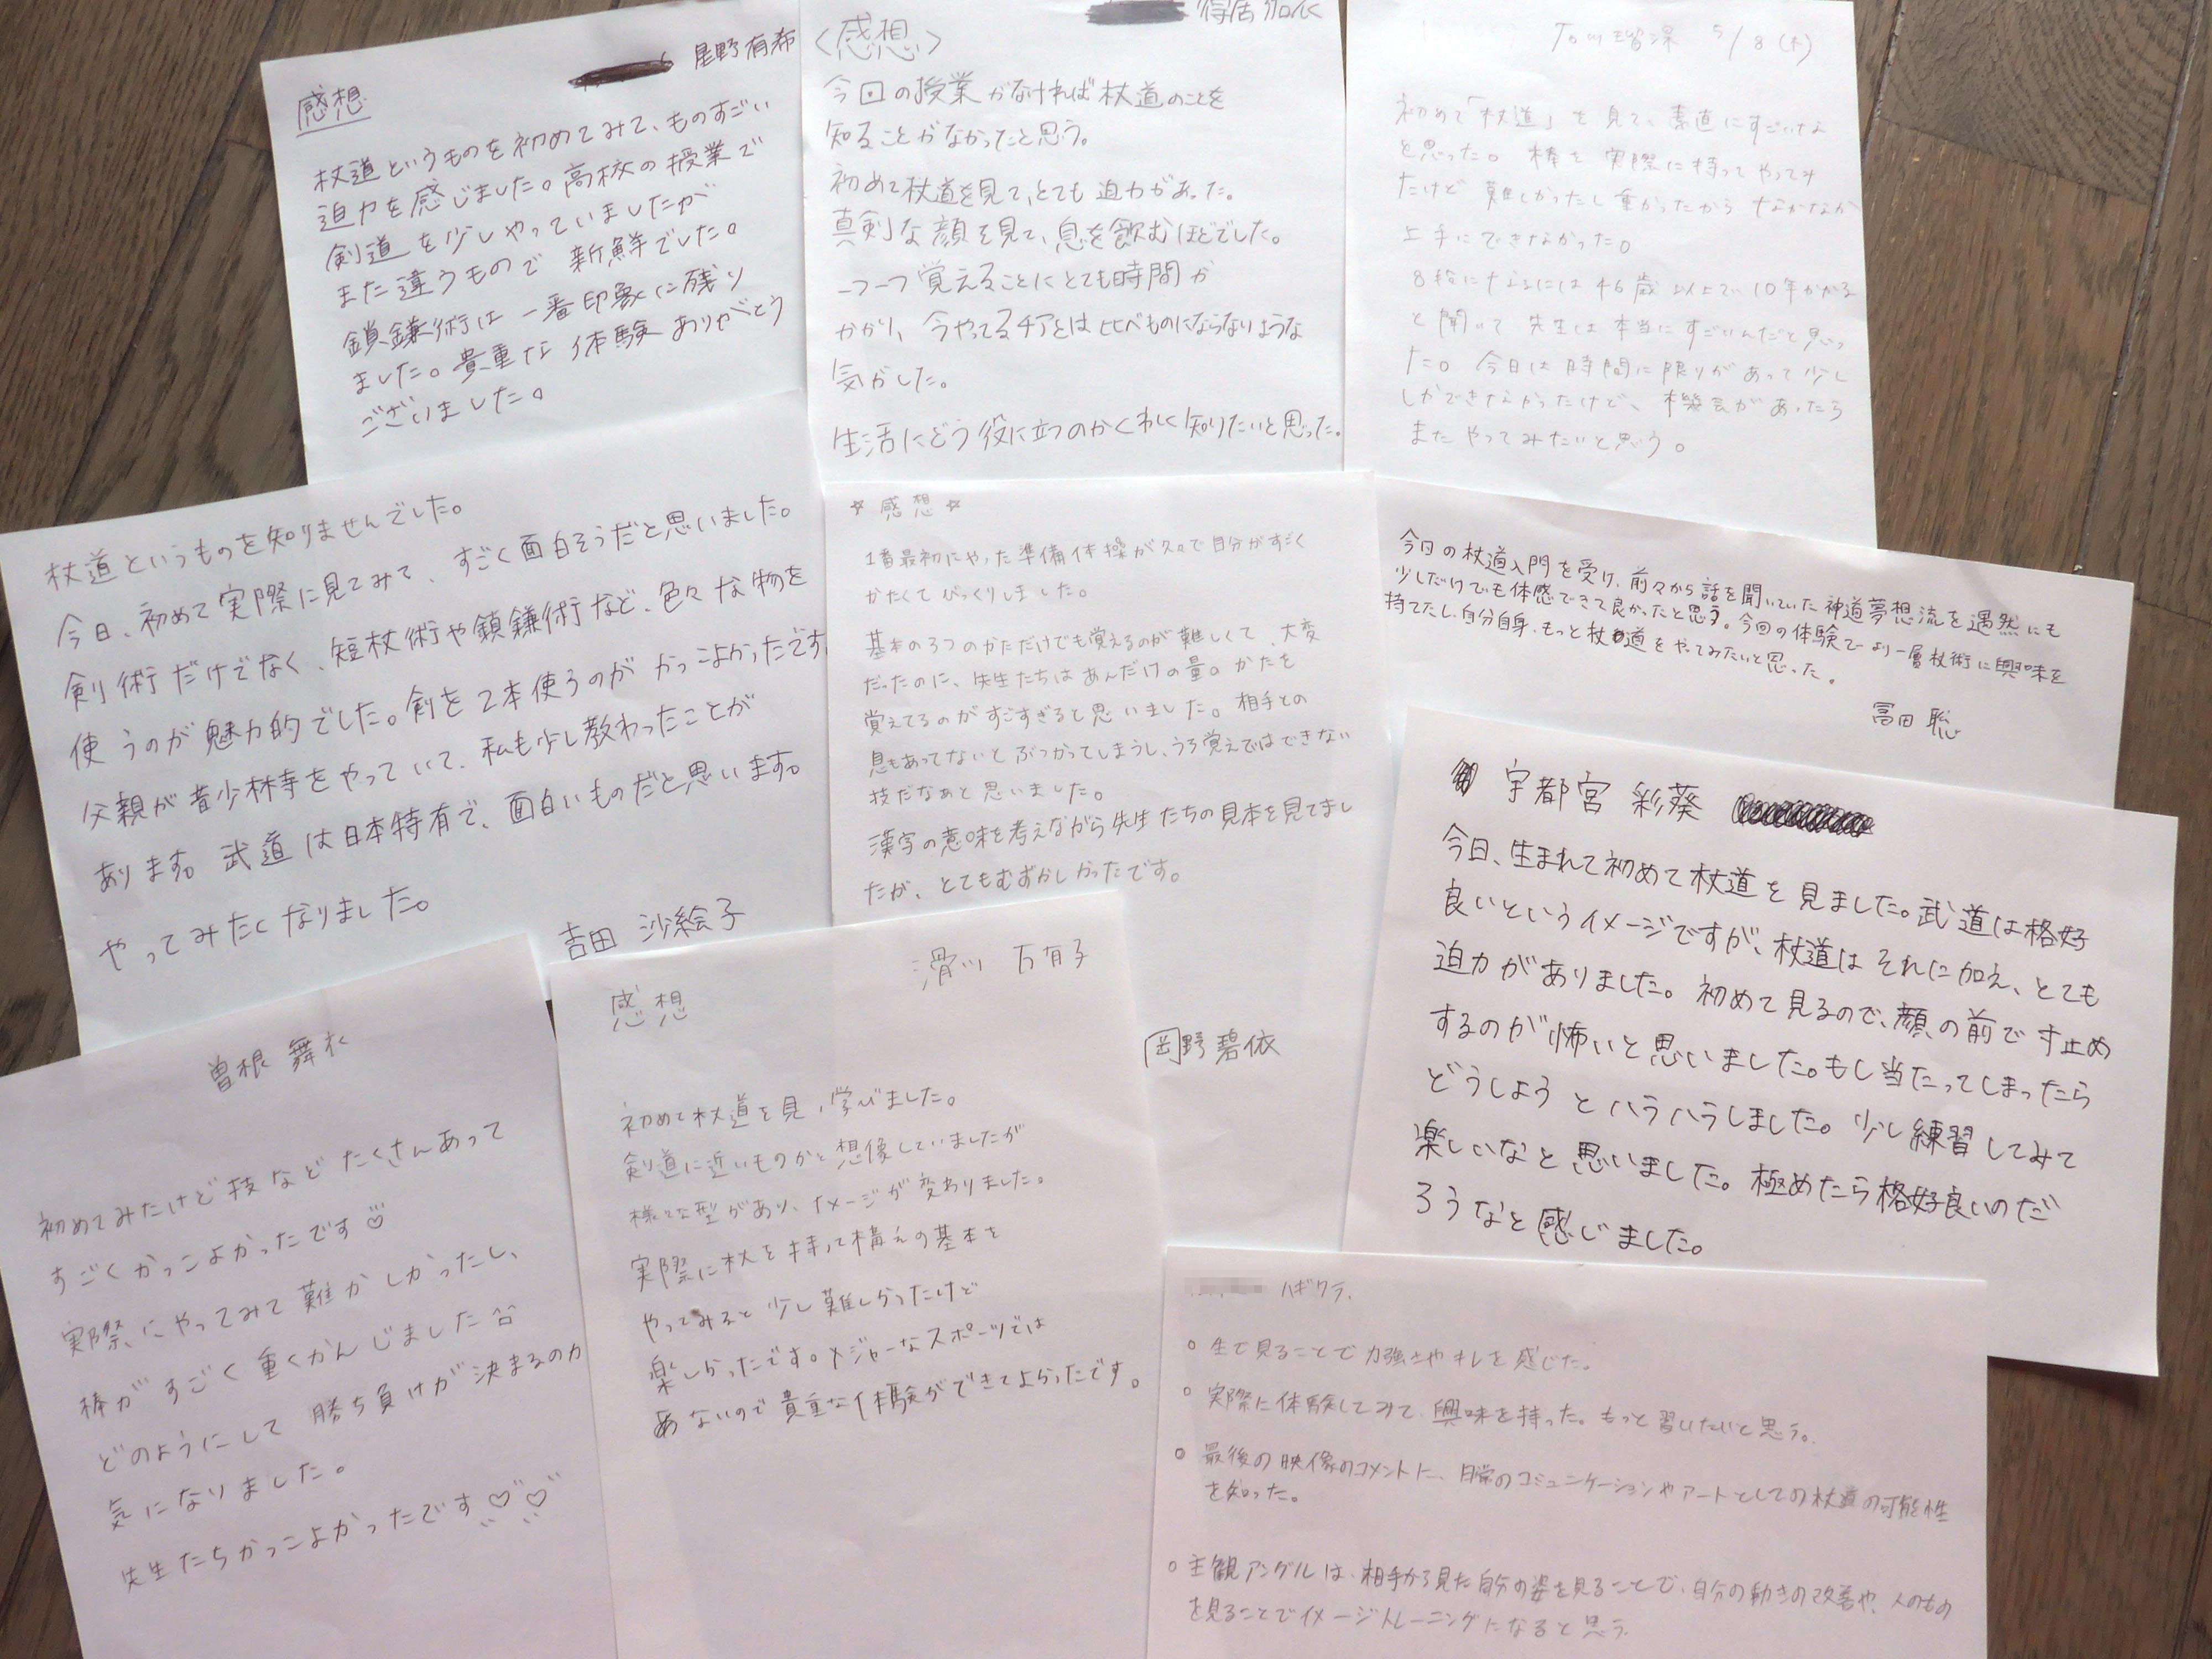 星野有希
感想
杖道というものを初めてみて、ものすごい
迫力を感じました。高校の授業で
剣道を少しやっていましたが
また違うもので 新鮮でした。
鎖鎌術は 一番印象に残り
ました。貴重な 体験 ありがとう
ございました。
〈感想〉
今回の授業がなければ杖道のことを
知ることがなかったと思う。
初めて杖道を見て、とても 迫力があった。
真剣な顔を見て、息を飲むほどでした。
一つ一つ覚えることにとても時間が
かかり、今やってるチアとは比べものにならなりような
気がした。
生活にどう役に立つのかくわしく知りたいと思った。
5/8(木)
初めて「杖道」を見て、素直にすごいな
と思った。棒を実際に持ってやってみ
たけど 難しかったし重かったから なかなか
上手にできなかった。
8段になるには46歳以上で10年かかる
と聞いて 先生は本当にすごいんだと思っ
た。今日は時間に限りがあって少し
しかできなかったけど、機会があったら
またやってみたいと思う。
杖道というものを知りませんでした。
今日、初めて実際に見てみて、すごく面白そうだと思いました。
剣術だけでなく、短杖術や鎖鎌術など、色々な物を
使うのが魅力的でした。剣を2本使うのが かっこよかったです。
父親が昔少林寺をやっていて、私も少し教わったことが
あります。武道は日本特有で、面白いものだと思います。
やってみたくなりました。
吉田 沙絵子
☆感想☆
1番最初にやった準備体操が久々で自分がすごく
かたくてびっくりしました。
基本の3つのかただけでも覚えるのが難しくて、大変
だったのに、先生たちはあんだけの量。かたを
覚えてるのがすごすぎると思いました。相手との
息もあってないとぶつかってしまうし、うろ覚えではできない
技だなあと思いました。
漢字の意味を考えながら先生たちの見本を見てまし
たが、とてもむずかしかったです。
岡野碧依
今日の杖道入門を受け、前々から話を聞いていた神道夢想流を遇然にも
少しだけでも体感できて良かったと思う。今回の体験でより一層杖術に興味を
持てたし、自分自身、もっと杖道をやってみたいと思った。
冨田 聡
宇都宮 彩葵
今日、生まれて初めて杖道を見ました。武道は格好
良いというイメージですが、杖道はそれに加え、とても
迫力がありました。初めて見るので、顔の前で寸止め
するのが怖いと思いました。もし当たってしまったら
どうしようとハラハラしました。少し練習してみて
楽しいなと思いました。極めたら格好良いのだ
ろうなと感じました。
曽根 舞衣
初めてみたけど技などたくさんあって
すごくかっこよかったです♡
実際にやってみて難かしかったし、
棒がすごく重くかんじました
どのようにして勝ち負けが決まるのか
気になりました。
先生たちかっこよかったです♡♡
滑川 万有子
感想
初めて杖道を見、学びました。
剣道に近いものかと想像していましたが
様々な型があり、イメージが変わりました。
実際に杖を持って構えの基本を
やってみると少し難しかったけど
楽しかったです。メジャーなスポーツでは
あないので貴重な体験ができてよかったです。
ハギワラ
○生で見ることで力強さやキレを感じた。
○実際に体験してみて、興味を持った。もっと習いたいと思う。
○最後の映像のコメントに、日常のコミュニケーションやアートとしての杖道の可能性
を知った。
○主観アングルは、相手から見た自分の姿を見ることで、自分の動きの改善や、人のもの
を見ることでイメージトレーニングになると思う